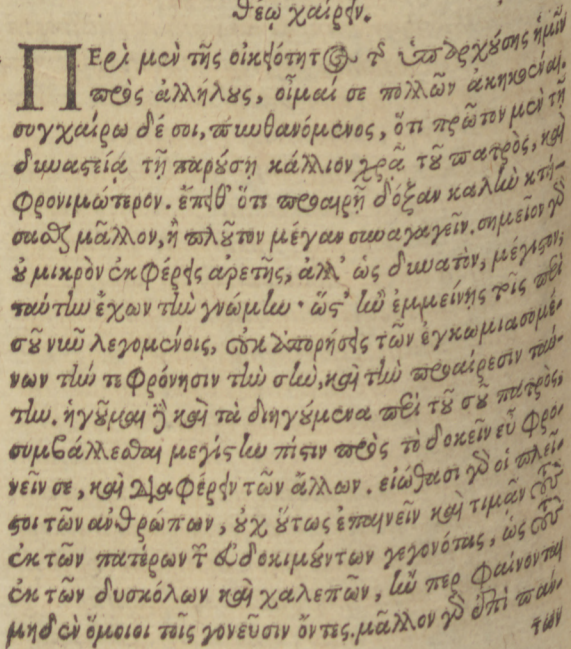 θέῳ χαίρειν.
ΠΕρὶ μὲν τῆς οἰκειότητος τῆς ὑπαρχούσης ἡμῖν
πρὸς ἀλλήλους, οἶμαί σε πολλῶν ἀκηκοέναι.
συγχαίρω δέ σοι, πυνθανόμενος, ὅτι πρῶτον μὲν τῇ
δυναστείᾳ τῇ παρούσῃ κάλλιον χρᾷ τοῦ πατρὸς, καὶ
φρονιμώτερον. ἔπειθ' ὅτι προαιρῇ δόξαν καλὴν κτή-
σασθαι μᾶλλον, ἢ πλοῦτον μέγαν συναγαγεῖν. σημεῖον γὰρ
οὐ μικρὸν ἐκφέρεις ἀρετῆς, ἀλλ' ὡς δυνατὸν, μέγιστον,
ταύτην ἔχων τὴν γνώμην· ὥστ' ἢν ἐμμείνῃς τοῖς περὶ
σοῦ νῦν λεγομένοις, οὐκ ἀπορήσεις τῶν ἐγκωμιασομέ-
νων τήν τε φρόνησιν τὴν σὴν, καὶ τὴν προαίρεσιν ταύ-
την. ἡγοῦμαι δὲ καὶ τὰ διηγούμενα περὶ τοῦ σοῦ πατρὸς,
συμβάλλεσθαι μεγίστην πίστιν πρὸς τὸ δοκεῖν εὖ φρο-
νεῖν σε, καὶ διαφέρειν τῶν ἄλλων. εἰώθασι γὰρ οἱ πλεῖ-
στοι τῶν ἀνθρώπων, οὐχ οὕτως ἐπαινεῖν καὶ τιμᾶν τοὺς
ἐκ τῶν πατέρων τῶν εὐδοκιμούντων γεγονότας, ὡς τοὺς
ἐκ τῶν δυσκόλων καὶ χαλεπῶν, ἤν περ φαίνονται
μηδὲν ὅμοιοι τοῖς γονεῦσιν ὄντες. μᾶλλον γὰρ ἐπὶ πάν-
των